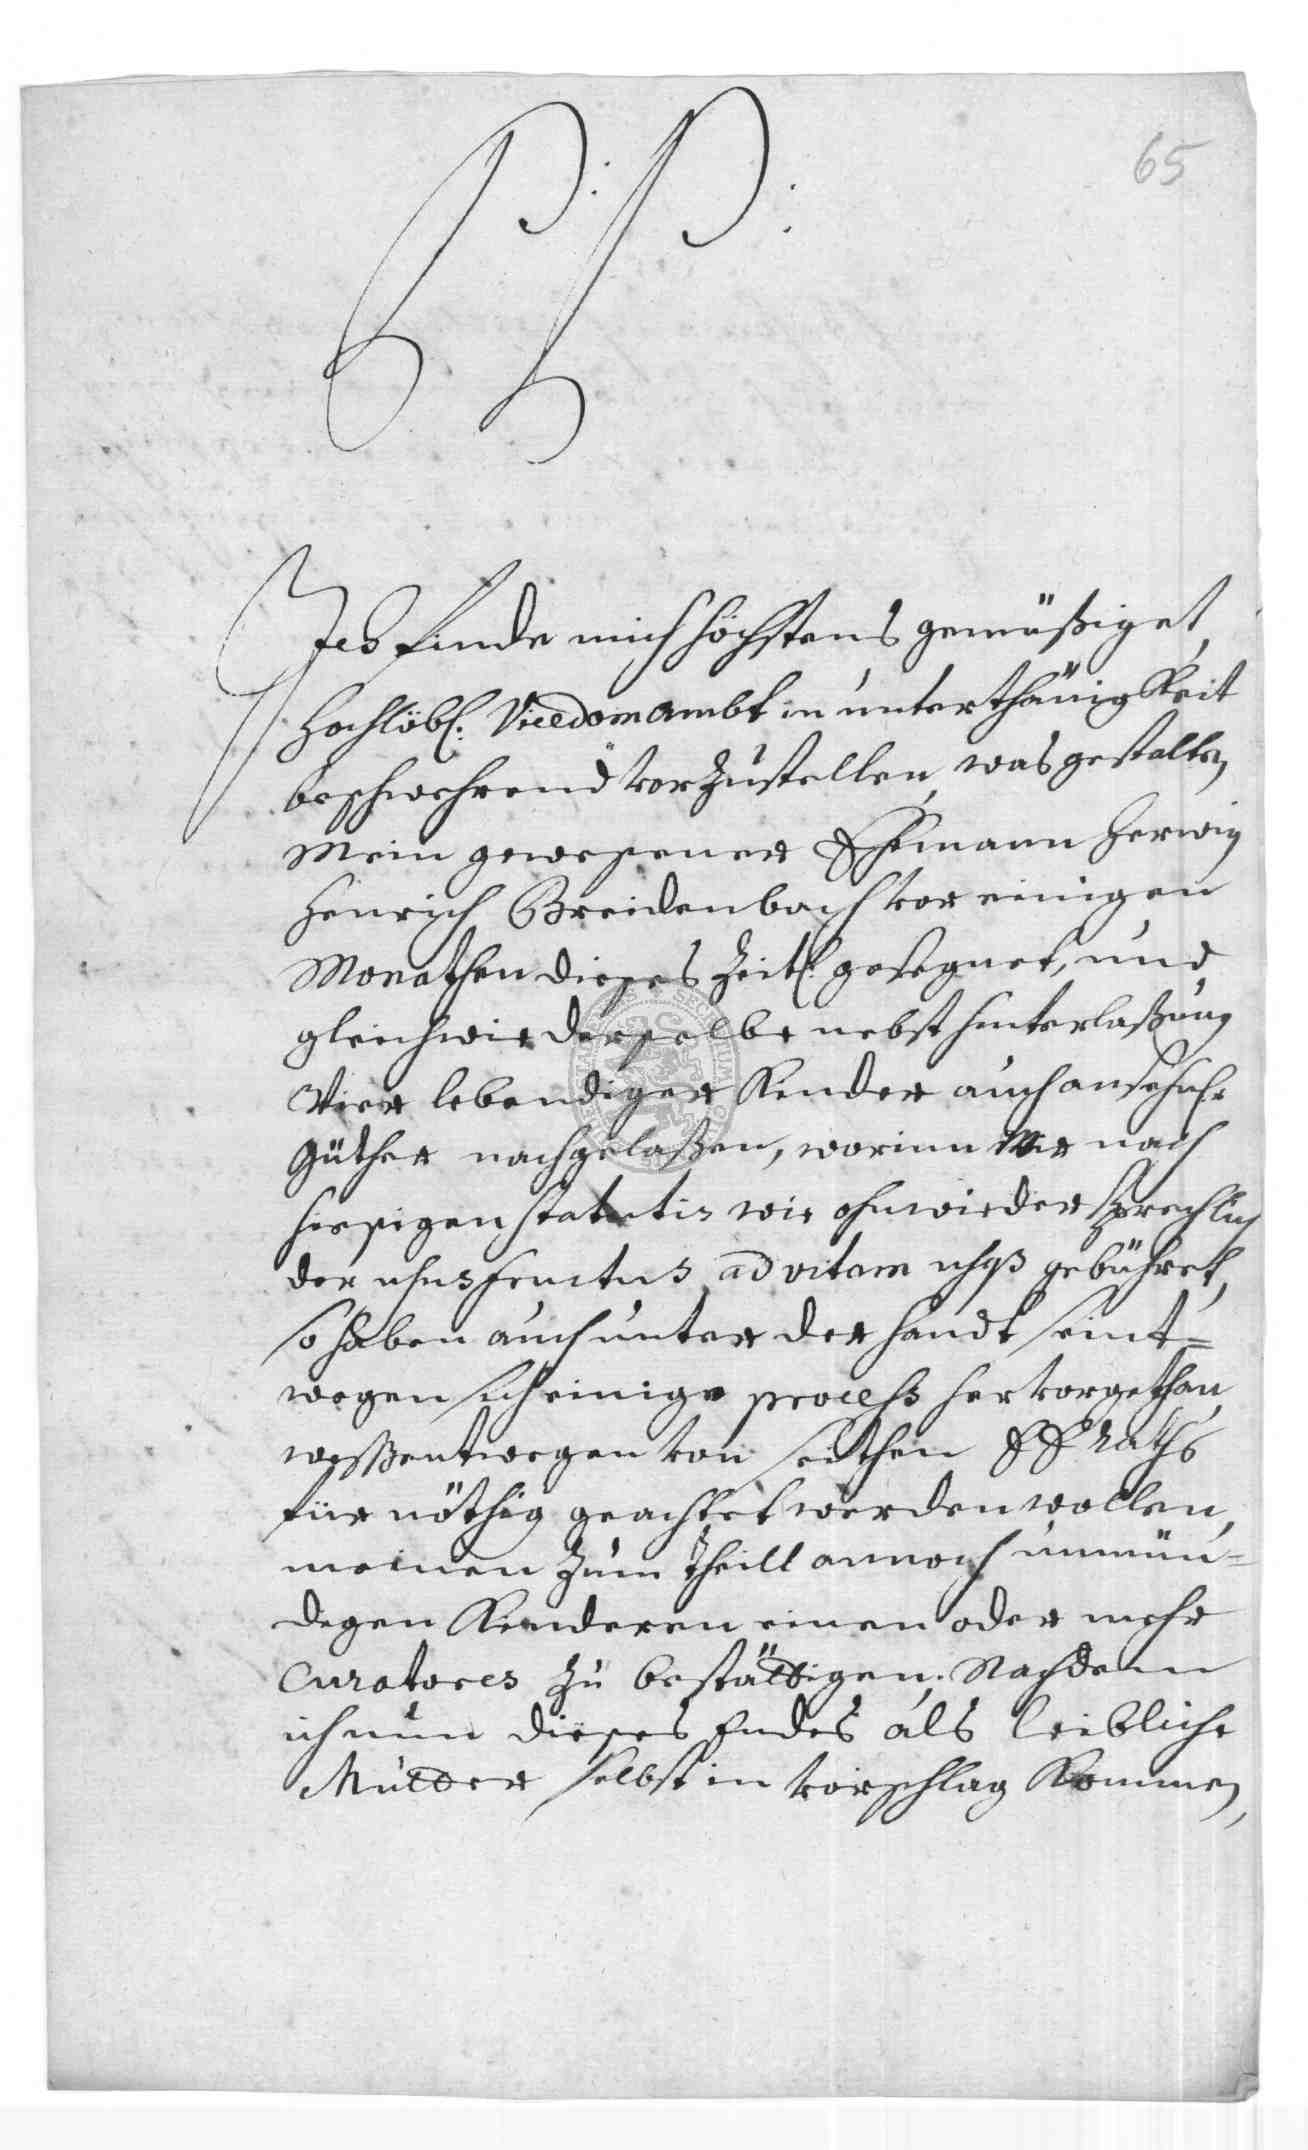 65
P: P:
Ich finde mich höchstens gemüßiget,
Hochlöbl: Vicedomambt in unterthänigkeit
beschwehrend vorzustellen, was gestalten
Mein gewesener Ehemann Herwig
Henrich Breidenbach vor einigen
Monathen dieses Zeitl: gesegnet, und
gleichwie derselbe nebst hinterlaßung
Vier lebendiger Kinder auch ansehnl:
Güther nachgelaßen, worinn Mir nach
hiesigen statutis wie ohnwiedersprechlich
der usus fructus ad vitam usq gebühret,
so haben auch unter der handt seint=
wegen sich einige process hervorgethan,
weßentwegen von seithen EE Raths
für nöthig geachtet werden wollen,
meinen zum theill annoch unmün=
digen Kinderen einen oder mehr
Curatores zu bestättigen. Nachdem
ich nun dieses Endes als leibliche
Mutter selbst in vorschlag kommen,